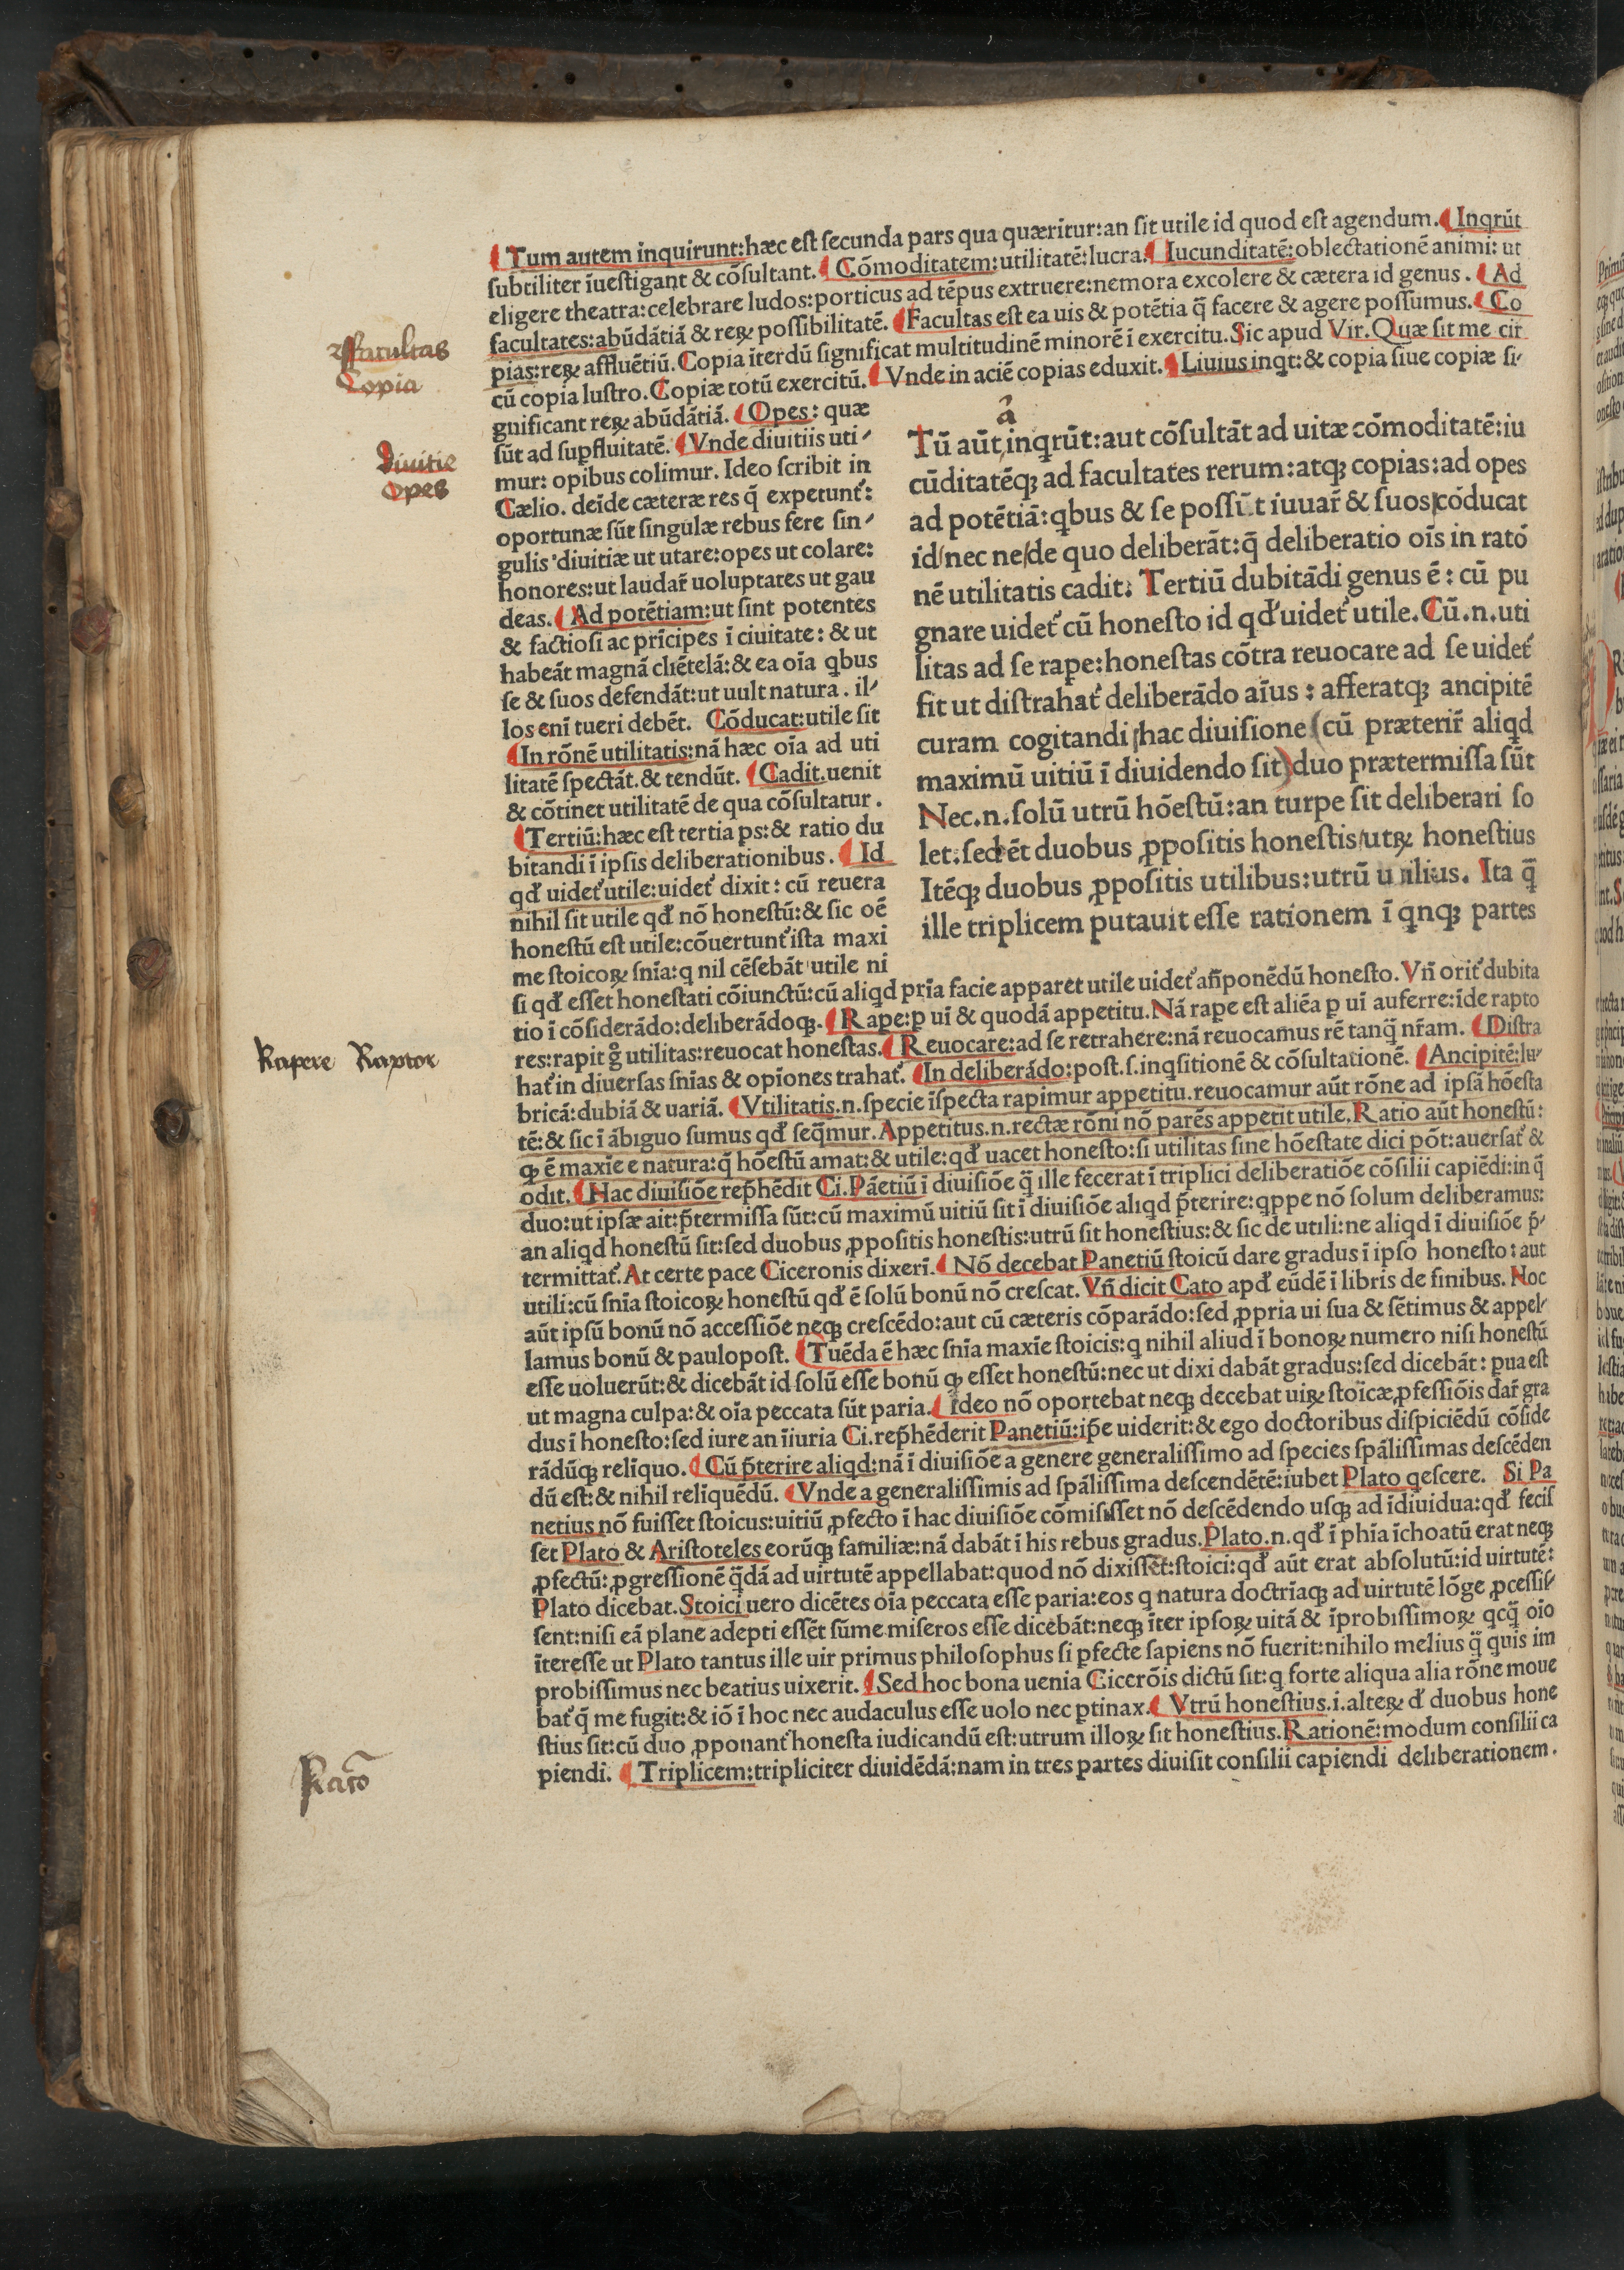 ¶Tum autem inquirunt:hæc eſt ſecunda pars qua quæritur:an ſit utile id quod eſt agendum.¶Inqrũt
ſubtiliter ĩueſtigant & cõſultant.¶Cõmoditatem:utilitatẽ:lucra.¶Iucunditatẽ:oblectationẽ animi: ut
eligere theatra:celebrare ludos:porticus ad tẽpus extruere:nemora excolere & cætera id genus.¶Ad
facultates:abũdãtiã & reꝝ poſſibilitatẽ.¶Facultas eſt ea uis & potẽtia q̃ facere & agere poſſumus.¶Co
pias:reꝝ affluẽtiũ.Copia ĩterdũ ſignificat multitudinẽ minorẽ ĩ exercitu.Sic apud Vir.Quæ ſit me cir
cũ copia luſtro.Copiæ totũ exercitũ.¶Vnde in aciẽ copias eduxit.¶Liuius inqt:& copia ſiue copiæ ſi-
gnificant reꝝ abũdãtiã.¶Opes: quæ
ſũt ad ſuꝑfluitatẽ.¶Vnde diuitiis uti-
mur: opibus colimur. Ideo ſcribit in
Cælio. deĩde cæteræ res q̃ expetunt᷑:
oportunæ ſũt ſingulæ rebus fere ſin-
gulis diuitiæ ut utare:opes ut colare:
honores:ut laudar̃ uoluptates ut gau
deas.¶Ad potẽtiam:ut ſint potentes
& factioſi ac prĩcipes ĩ ciuitate: & ut
habeãt magnã cliẽtelã:& ea oĩa qbus
ſe & ſuos defendãt:ut uult natura. il-
los enĩ tueri debẽt. Cõducat:utile ſit
¶In rõnẽ utilitatis:nã hæc oĩa ad uti
litatẽ ſpectãt.& tendũt.¶Cadit.uenit
& cõtinet utilitatẽ de qua cõſultatur.
¶Tertiũ:hæc eſt tertia ps:& ratio du
bitandi ĩ ipſis deliberationibus.¶Id
qd̃ uidet᷑ utile:uidet᷑ dixit: cũ reuera
nihil ſit utile qd̃ nõ honeſtũ:& ſic oẽ
honeſtũ eſt utile:cõuertunt᷑ iſta maxi
me ſtoicoꝝ ſnĩa:q nil cẽſebãt utile ni
â
Tũ aũt inqrũt:aut cõſultãt ad uitæ cõmoditatẽ:iu
cũditatẽqꝫ ad facultates rerum:atqꝫ copias:ad opes
ad potẽtiã:qbus & ſe poſſũt iuuar̃ & ſuos cõducat
id/nec ne/de quo deliberãt:q̃ deliberatio oĩs in ratõ
nẽ utilitatis cadit. Tertiũ dubitãdi genus ẽ: cũ pu
gnare uidet᷑ cũ honeſto id qd̃ uidet᷑ utile.Cũ.n.uti
litas ad ſe raꝑe:honeſtas cõtra reuocare ad ſe uidet᷑
fit ut diſtrahat᷑ deliberãdo aĩus: afferatqꝫ ancipitẽ
curam cogitandi/hac diuiſione (cũ præterir̃ aliqd
maximũ uitiũ ĩ diuidendo ſit) duo prætermiſſa ſũt
Nec.n.ſolũ utrũ hõeſtũ:an turpe ſit deliberari ſo
let:ſed ẽt duobus ꝓpoſitis honeſtis/utꝝ honeſtius
Itẽqꝫ duobus ꝓpoſitis utilibus:utrũ utilius. Ita q̃
ille triplicem putauit eſſe rationem ĩ qnqꝫ partes
ſi qd̃ eſſet honeſtati cõiunctũ:cũ aliqd prĩa facie apparet utile uidet᷑ añponẽdũ honeſto.Vñ orit᷑ dubita
tio ĩ cõſiderãdo:deliberãdoqꝫ.¶Raꝑe:ꝑ uĩ & quodã appetitu.Nã raꝑe eſt aliẽa ꝑ uĩ auferre:ĩde rapto
res:rapit gͦ utilitas:reuocat honeſtas.¶Reuocare:ad ſe retrahere:nã reuocamus rẽ tanq̃ nr̃am.¶Diſtra
hat᷑ in diuerſas ſnĩas & opĩones trahat᷑.¶In deliberãdo:poſt.ſ.inqſitionẽ & cõſultationẽ.¶Ancipitẽ:lu-
bricã:dubiã & uariã.¶Vtilitatis.n.ſpecie ĩſpecta rapimur appetitu.reuocamur aũt rõne ad ipſã hõeſta
tẽ:& ſic ĩ ãbiguo ſumus qd̃ ſeq̃mur.Appetitus.n.rectæ rõni nõ parẽs appetit utile.Ratio aũt honeſtũ:
ꝙ ẽ maxĩe e natura:q̃ hõeſtũ amat:& utile:qd̃ uacet honeſto:ſi utilitas ſine hõeſtate dici põt:auerſat᷑ &
odit.¶Hac diuiſiõe rep̃hẽdit Ci.Pãetiũ ĩ diuiſiõe q̃ ille fecerat ĩ triplici deliberatiõe cõſilii capiẽdi:in q̃
duo:ut ipſæ ait:p̃termiſſa ſũt:cũ maximũ uitiũ ſit ĩ diuiſiõe aliqd p̃terire:qppe nõ ſolum deliberamus:
an aliqd honeſtũ ſit:ſed duobus ꝓpoſitis honeſtis:utrũ ſit honeſtius:& ſic de utili:ne aliqd ĩ diuiſiõe p̃-
termittat᷑.At certe pace Ciceronis dixerĩ.¶Nõ decebat Panetiũ ſtoicũ dare gradus ĩ ipſo honeſto: aut
utili:cũ ſnĩa ſtoicoꝝ honeſtũ qd̃ ẽ ſolũ bonũ nõ creſcat.Vñ dicit Cato apd̃ eũdẽ ĩ libris de finibus. Hoc
aũt ipſũ bonũ nõ acceſſiõe neqꝫ creſcẽdo:aut cũ cæteris cõparãdo:ſed ꝓpria ui ſua & ſẽtimus & appel-
lamus bonũ & paulopoſt.¶Tuẽda ẽ hæc ſnĩa maxĩe ſtoicis:q nihil aliud ĩ bonoꝝ numero niſi honeſtũ
eſſe uoluerũt:& dicebãt id ſolũ eſſe bonũ ꝙ eſſet honeſtũ:nec ut dixi dabãt gradus:ſed dicebãt: pua eſt
ut magna culpa:& oĩa peccata ſũt paria.¶Ideo nõ oportebat neqꝫ decebat uiꝝ ſtoicæ ꝓfeſſiõis dar̃ gra
dus ĩ honeſto:ſed iure an ĩiuria Ci.rep̃hẽderit Panetiũ:ip̃e uiderit:& ego doctoribus diſpiciẽdũ cõſide
rãdũqꝫ relĩquo.¶Cũ p̃terire aliqd:nã ĩ diuiſiõe a genere generaliſſimo ad ſpecies ſpãliſſimas deſcẽden
dũ eſt:& nihil relĩquẽdũ.¶Vnde a generaliſſimis ad ſpãliſſima deſcendẽtẽ:iubet Plato qeſcere. Si Pa
netius nõ fuiſſet ſtoicus:uitiũ ꝓfecto ĩ hac diuiſiõe cõmiſiſſet nõ deſcẽdendo uſqꝫ ad ĩdiuidua:qd̃ feciſ
ſet Plato & Ariſtoteles eorũqꝫ familiæ:nã dabãt ĩ his rebus gradus.Plato.n.qd̃ ĩ phĩa ĩchoatũ erat neqꝫ
ꝓfectũ:ꝓgreſſionẽ q̃dã ad uirtutẽ appellabat:quod nõ dixiſſet:ſtoici:qd̃ aũt erat abſolutũ:id uirtutẽ:
Plato dicebat.Stoici uero dicẽtes oĩa peccata eſſe paria:eos q natura doctrĩaqꝫ ad uirtutẽ lõge ꝓceſſiſ-
ſent:niſi eã plane adepti eſſẽt ſũme miſeros eſſe dicebãt:neqꝫ ĩter ipſoꝝ uitã & ĩprobiſſimoꝝ qcq̃ oĩo
ĩtereſſe ut Plato tantus ille uir primus philoſophus ſi ꝑfecte ſapiens nõ fuerit:nihilo melius q̃ quis im
probiſſimus nec beatius uixerit.¶Sed hoc bona uenia Cicerõis dictũ ſit:q forte aliqua alia rõne moue
bat᷑ q̃ me fugit:& iõ ĩ hoc nec audaculus eſſe uolo nec ꝑtinax.¶Vtrũ honeſtius.i.alteꝝ d̃ duobus hone
ſtius ſit:cũ duo ꝓponant᷑ honeſta iudicandũ eſt:utrum illoꝝ ſit honeſtius.Rationẽ:modum conſilii ca
piendi.¶Triplicem:tripliciter diuidẽdã:nam in tres partes diuiſit conſilii capiendi deliberationem.
Facultas
Copia
Diuitie
Opes
Rapere Raptor